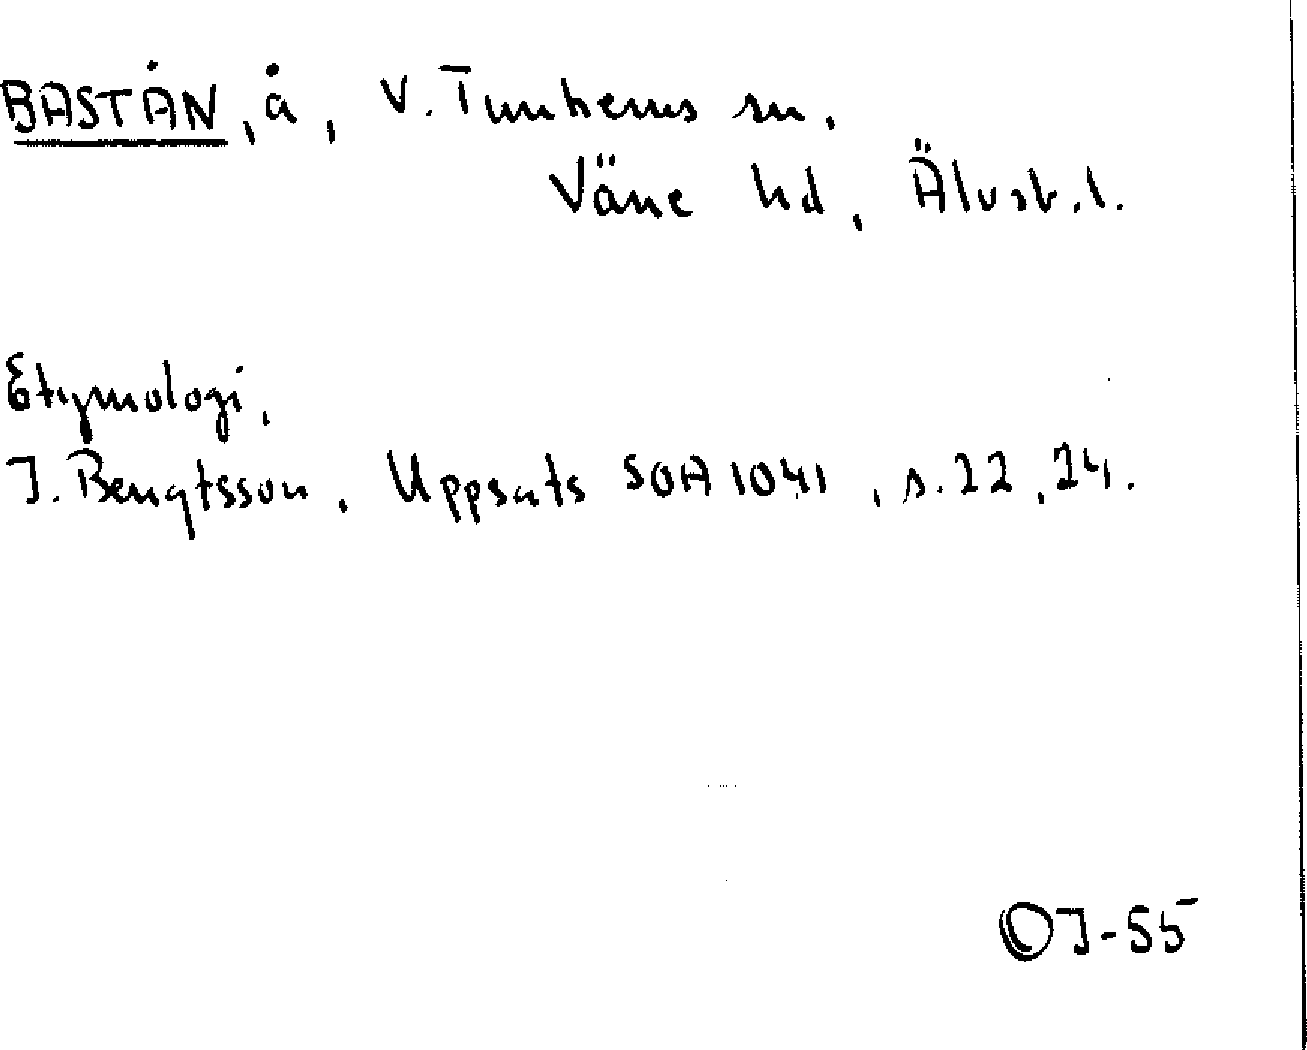 BASTÅN, å, V. Tunhems sn,
Väne hd, Älvsb. l.
Etymologi,
J. Bengtsson, Uppsats SOA 1041, s. 22, 24.
OJ-55